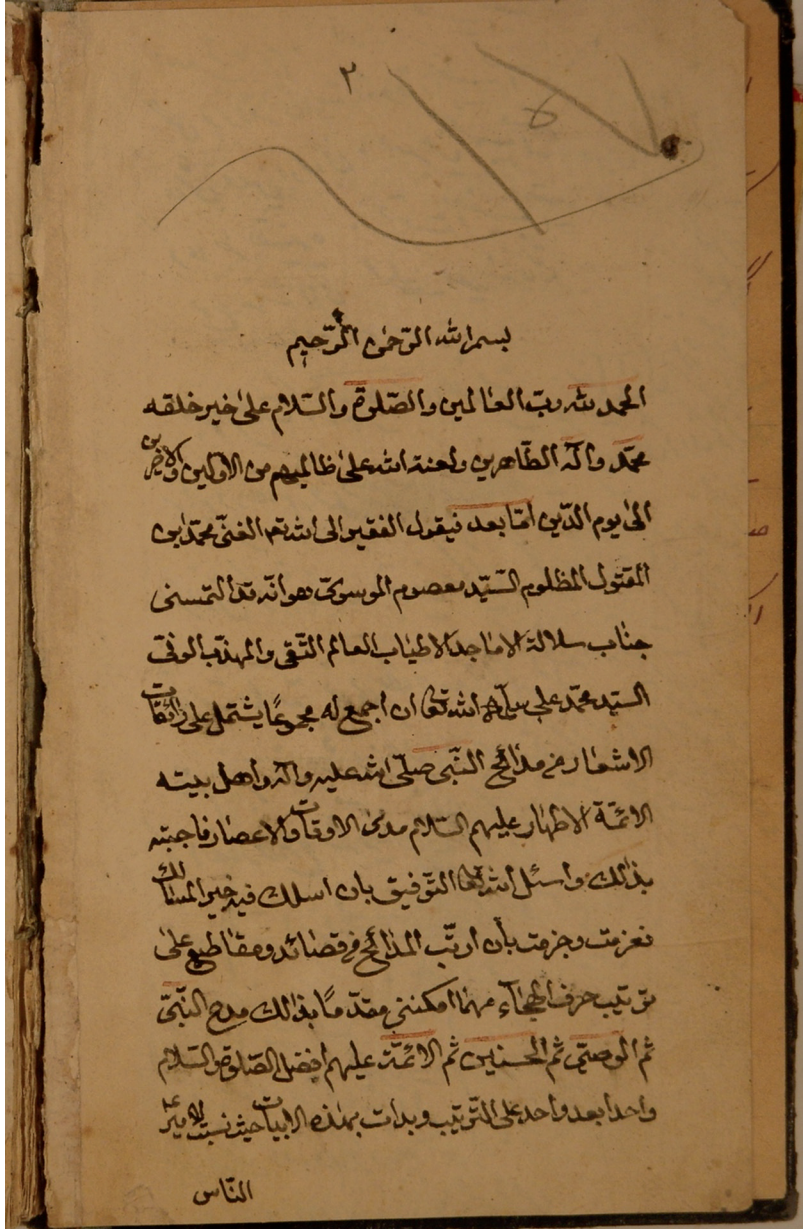 ٢
بسم الله الرّحمن الرّحيم
الحمد لله ربّ العالمين والصّلوة والسّلام على خير خلقه
محمّد وآله الطّاهرين ولعنة الله على ظالميهم من الاوّلين والآخرين
الى يوم الدّين امّا بعد فيقول الفقير الى الله تعم الغنيّ محمّد ابن
المقتول المظلوم السّيّد معصوم الموسويّ هو انّه قد التمسنى
جناب سلالة الاماجد الاطياب العالم التّقى والمهذّب الوفى
السيّد محمّد على سلّمه الله تعا ان اجمع له مجموعًا يشتمل على رائقات
الاشعار من مدائح النّبى صلّى الله عليه وآله واهل بيته
الائمّة الاطهار عليهم السّلام مدى الاوقات والاعصار فاجبته
بذالك واسئل الله تعا التّوفيق بان اسلك فيه خير المسالك
فعزمت وجزمت بأن ارتّب المدائح فى قصائد ومقاطيع على
ترتيب حرف الهجاء مهما امكننى مقدّمًا بذالك مدح النّبيّ
ثم الوصىّ ثم الحسنين ثم الائمّة عليهم افضل الصّلوة والسّلام
واحدا بعد واحد على التّرتيب وبدات بهذه الابيات حيث نسبت للامير ع
النّاس